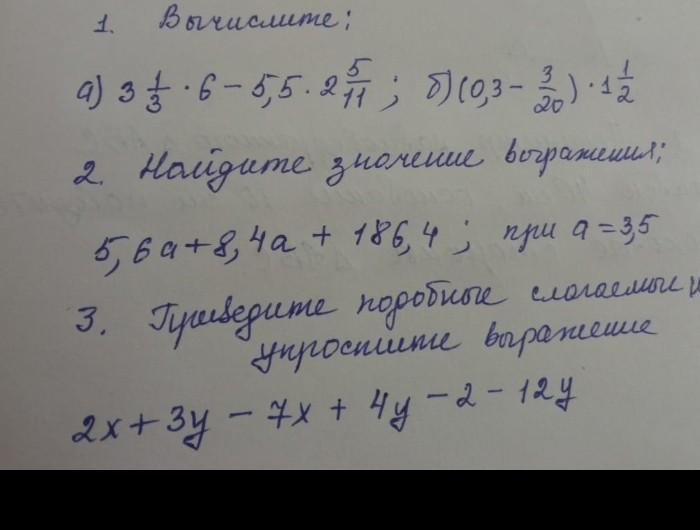 1. Вычислите:
а) 3 1/3 · 6 − 5,5 · 2 5/11 ; б) (0,3 − 3/20) · 1 1/2
2. Найдите значение выражения:
5,6a + 8,4a + 186,4 ; при a = 3,5
3. Приведите подобные слагаемые и
упростите выражение
2x + 3y − 7x + 4y − 2 − 12y